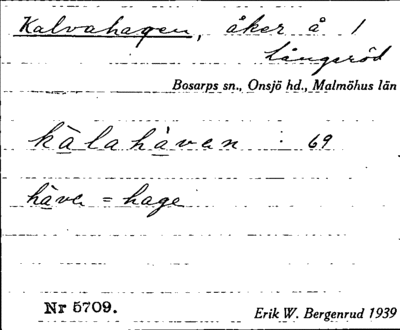 Kalvahagen, åker å 1
Långaröd
Bosarps sn., Onsjö hd., Malmöhus län
kàlahàvan : 69
hàve = hage
Nr 5709.
Erik W. Bergenrud 1939